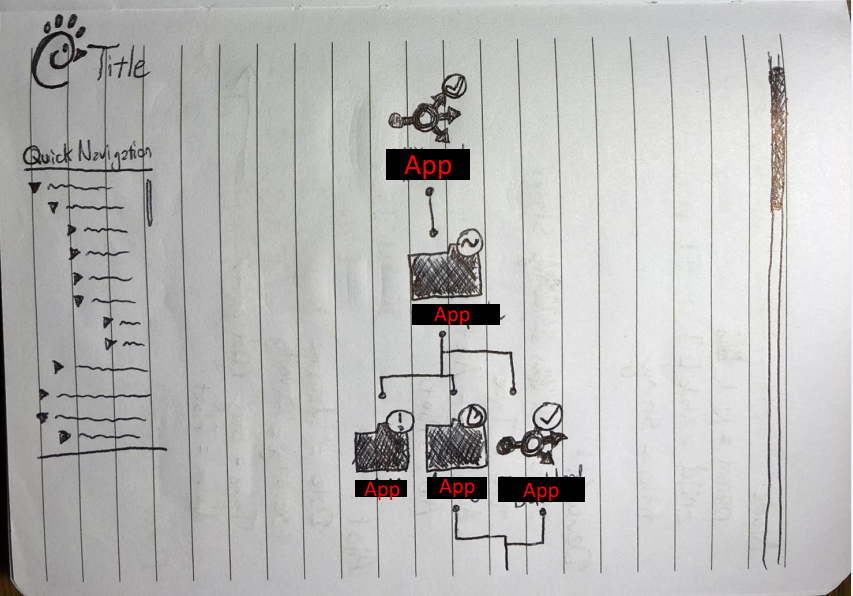 Title
Quick Navigation
App
App
App
App
App